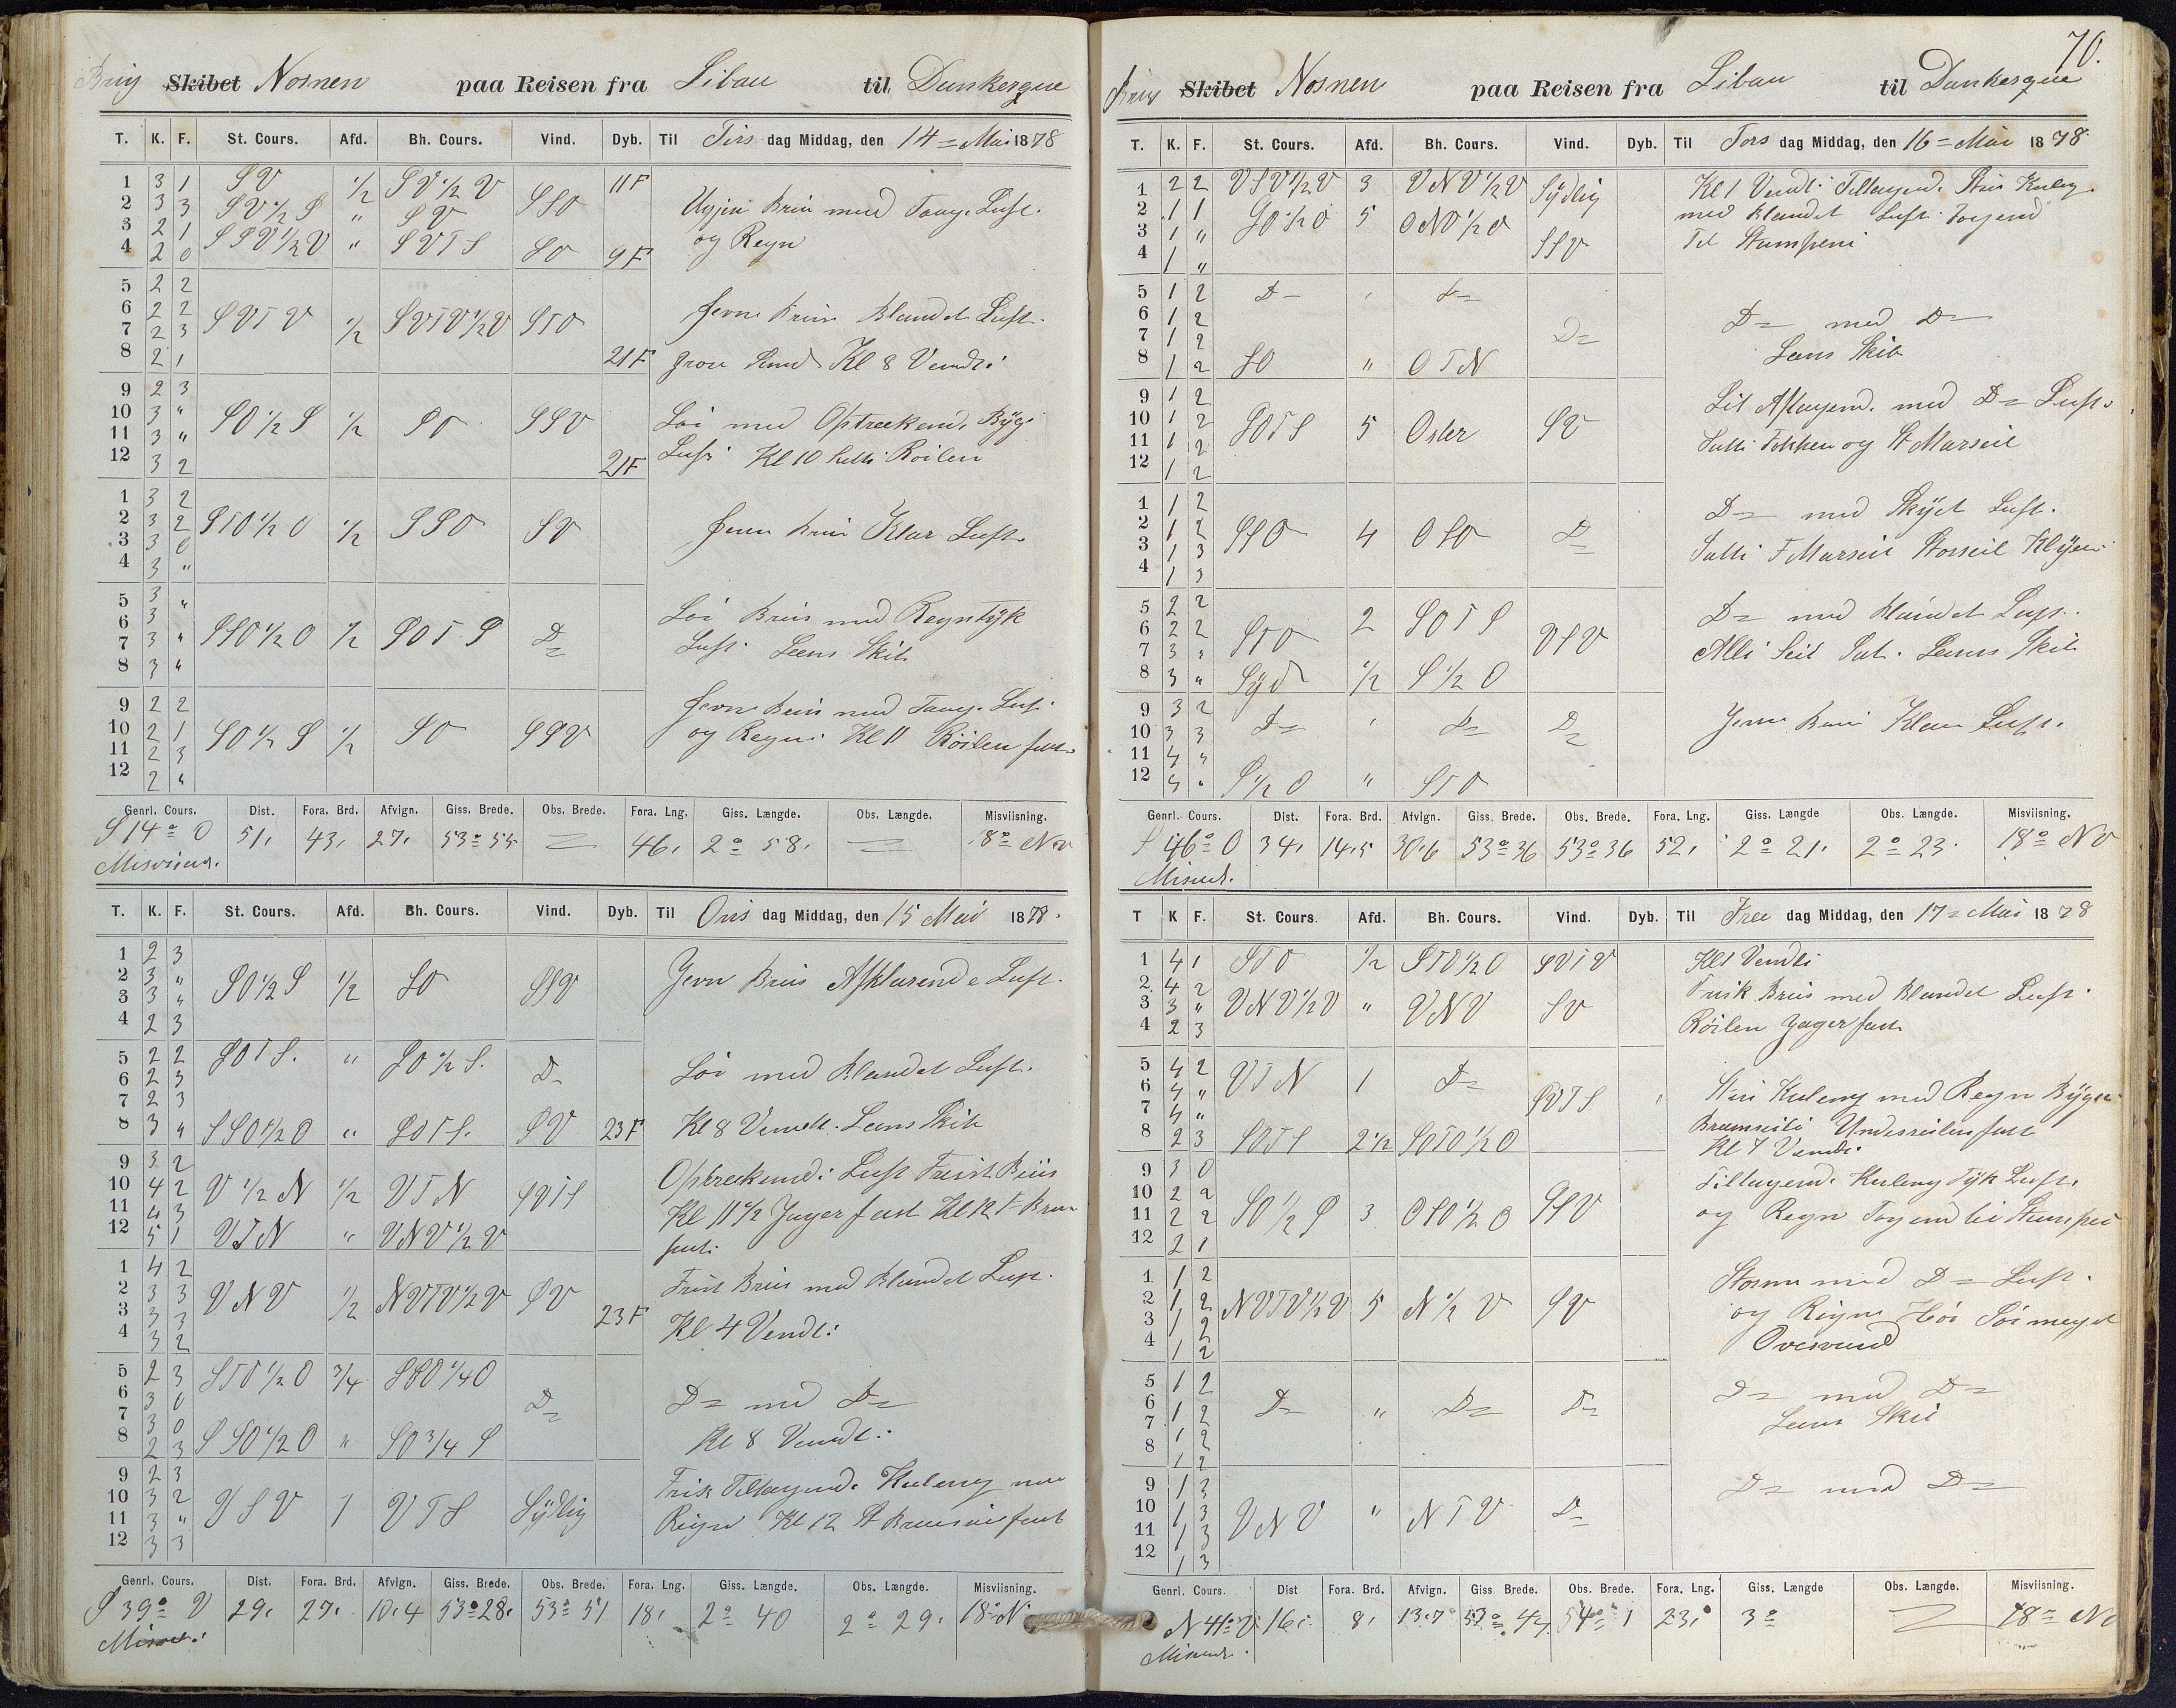 Brig Skibet Nornen paa Reisen fra Libau til Dunkerque
T. K. F. St. Cours. Afd. Bh. Cours. Vind. Dyb. Til Tirs dag Middag, den 14 = Mai 1878
1 3 1 SV 1/2 SV 1/2 V 11F
2 3 3 SV 1/2 S " SV SSO
3 2 1 SSV 1/2 V " SVTS
4 2 0 SO 9F
Bris med Luft.
og Regn
5 2 2
6 2 2 SVTV 1/2 SVTV 1/2 V STO
7 2 3
8 2 1 21F
Jevn Bris Blandet Luft.
Kl 8 Vendt:
9 2 3
10 3 " SO 1/2 S 1/2 SO SSV
11 3 "
12 3 2 21F
Løi med Optreckend. Byge
Luft Kl 10 Røilen
1 3 2
2 3 2 STO 1/2 O 1/2 SSO SV
3 3 0
4 3 "
Jevn Bris Klar Luft
5 3 "
6 3 SSO 1/2 O 1/2 SOTS D=
7 3 "
8 3 "
Løi Bris med Regntyk
Luft. Lens Skib
9 2 2
10 2 1 SO 1/2 S 1/2 SO SSV
11 2 3
12 2 "
Jevn Bris med Luft
og Regn: Kl 11 Røilen fast
Genrl. Cours. Dist. Fora. Brd. Afvign. Giss. Brede. Obs. Brede. Fora. Lng. Giss. Længde. Obs. Længde. Misviisning.
S 14° O 51, 43, 27, 53° 55 = 46, 2° 58, = 18° NV
T. K. F. St. Cours. Afd. Bh. Cours. Vind. Dyb. Til Ons dag Middag, den 15 Mai 1878.
1 2 3
2 3 " SO 1/2 S 1/2 SO SSV
3 3 "
4 2 3
Jevn Bris Afklarende Luft.
5 2 2 SOTS. " SO 1/2 S. D=
6 2 3
7 2 3
8 3 " SSO 1/2 O " SOTS. SV 23F
Løi med Blandet Luft.
Kl 8 Vendt. Lens Skib
9 3 2
10 4 2 V 1/2 N 1/2 VTN SVTS
11 4 3
12 5 1 VTN " VNV 1/2 V
Optreckend: Luft Frisk Bris
Kl 11 1/2 Jager fast Kl 12 F Bram
fast.
1 4 2
2 3 3 VNV 1/2 NVTV 1/2 V SV
3 3 3 23F
4 3 2
Frisk Bris med Blandet Luft.
Kl 4 Vendt:
5 2 3 STO 1/2 O 3/4 SSO 1/4 O
6 3 0 D=
7 3 0
8 2 3 SSO 1/2 O " SO 3/4 S
D= med D=
Kl 8 Vendt:
9 2 3
10 3 2 VSV 1 VTS Sydlig
11 3 "
12 3 3
Frisk Tiltagend. Kuleng med
Regn Kl 12 St Bramseil fast
Genrl. Cours. Dist. Fora. Brd. Afvign. Giss. Brede. Obs. Brede. Fora. Lng. Giss. Længde. Obs. Længde. Misviisning.
S 39° V 29, 27, 10.4 53° 28, 53° 51 18, 2° 40 2° 29, 18° N
70.
Brig Skibet Nornen paa Reisen fra Libau til Dunkerque
T. K. F. St. Cours. Afd. Bh. Cours. Vind. Dyb. Til Tors dag Middag, den 16 = Mai 1878
1 2 2 VSV 1/2 V 3 VNV 1/2 V Sydlig
2 1 1 SO 1/2 O 5 ONO 1/2 O
3 1 " SSV
4 1 "
Kl 1 Vendt: Tiltagend. Stiv Kuleng
med Blandet Luft.
5 1 2 D= " D=
6 1 2
7 1 2 D=
8 1 2 SO " OTN
D= med D=
Lens Skib
9 1 2
10 1 2 SOTS 5 Oster SV
11 1 2
12 1 2
Lit Aftagend. med D= Luft.
Satte Fokken og St Marseil
1 1 2
2 1 2 SSO 4 OSO D=
3 1 3
4 1 3
D= med Skyet Luft.
Satte F Marseil Storseil Klyver
5 2 2
6 2 2 STO 2 SOTS VSV
7 3 "
8 3 " Syd 1/2 S 1/2 O
D= med Blandet Luft.
Alle Seil Sat. Lens Skib
9 3 2
10 3 3 D= " D= D=
11 4 "
12 4 " S 1/2 O " STO
Jevn Bris Klar Luft.
Genrl. Cours. Dist. Fora. Brd. Afvign. Giss. Brede. Obs. Brede. Fora. Lng. Giss. Længde Obs. Længde. Misviisning.
S 46° O 34, 14.5 30.6 53° 36 53° 36 52, 2° 21, 2° 23. 18° NV
T K F. St. Cours Afd. Bh. Cours. Vind. Dyb. Til Fre dag Middag, den 17 = Mai 1878
1 4 1 STO 1/2 STO 1/2 O SVTV
2 4 2
3 3 " VNV 1/2 V " VNV SV
4 2 3
Kl 1 Vendt:
Frisk Bris med Blandet Luft.
Røilen Jager fast
5 4 2
6 4 " VTN 1 D= SVTS
7 4 "
8 2 3 SOTS 2 1/2 SOTO 1/2 O
Stiv Kuleng med Regn Byger
Bramseil Undersseilen fast
Kl 7 Vendt:
9 3 0
10 2 2
11 2 2 SO 1/2 S 3 OSO 1/2 O SSV
12 2 1
Tiltagend. Kuleng Tyk Luft.
og Regn
1 1 2
2 1 2 NVTV 1/2 V 5 N 1/2 V SV
3 1 2
4 1 2
Storm med D= Luft.
og Regn Høi Sø meget
Overvand
5 1 2
6 1 2 D= " D= D=
7 1 2
8 1 2
D= med D=
Lens Skib
9 1 3
10 1 3 VNV " NTV D=
11 1 3
12 1 3
D= med D=
Genrl. Cours. Dist Fora. Brd. Afvign. Giss. Brede. Obs. Brede. Fora. Lng. Giss. Længde Obs. Længde. Misviisning.
N 41° V 16, 8, 13.7 53° 47 54° 1 23, 3° = 18° NV